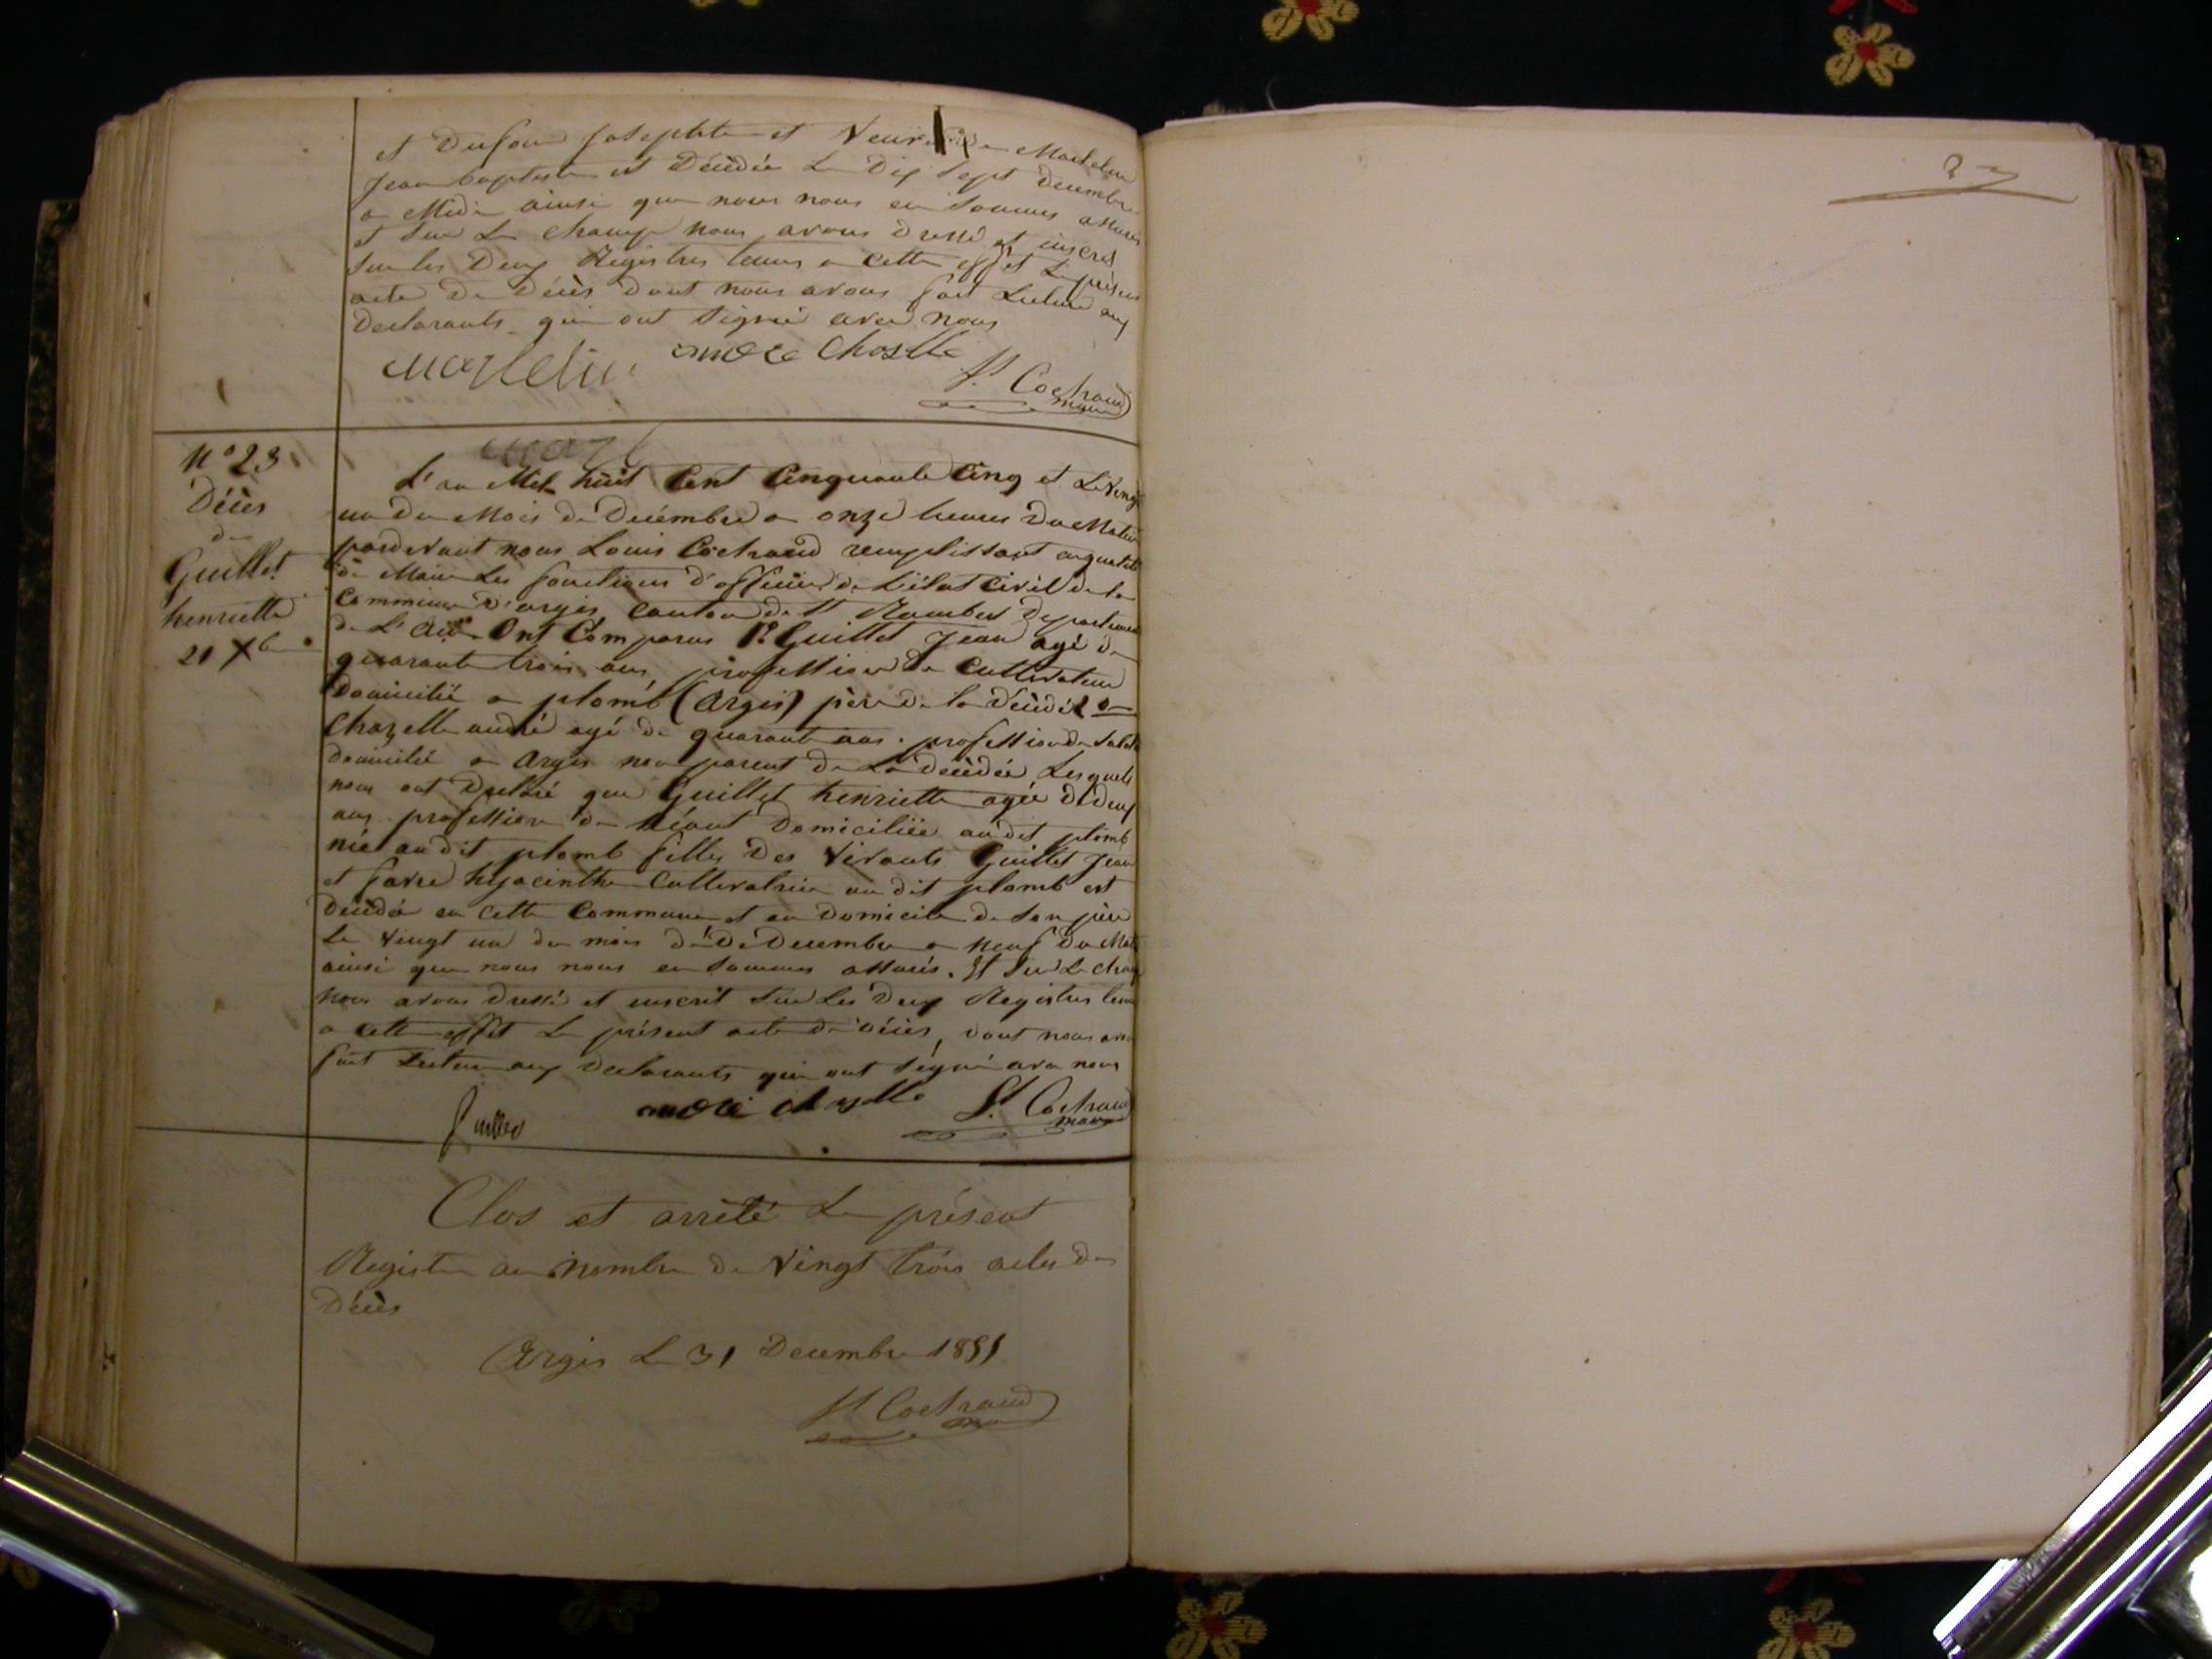 et Dufour Josephte et Veuve de Martelin
Jean baptiste est Décédée Le Dix Sept Decembre
a Midi ainsi que nous nous en Sommes assurés
et Sur Le Champ nous avons Dressé et inscrit
Sur les Deux Registres tenus a Cette effet Le présent
acte De Décès Dont nous avons fait Lecture aux
Declarants qui ont Signé avec nous
andré Chazelle
Ls Cochaud
maire
N° 23
Décès
de
Guillet
henriette
21 Xbre
L'an Mil huit Cent Cinquante Cinq et Le Vingt
un Du Mois De Décembre a onze heures Du Matin
pardevant nous Louis Cochaud remplissant en qualité
de Maire Les fonctions d'officier de L'état Civil de la
Commune d'argis Canton de St Rambert Departement
de L'Ain Ont Comparus 1° Guillet Jean agé de
quarante trois ans, profession De Cultivateur
Domicilié a plomb (Argis) père De la Décédée 2°
Chazelle andré agé de quarante ans . profession De
Domicilié a Argis non parent De La Décédée, Lesquels
nous ont Declaré que Guillet henriette agée De Deux
ans profession De Néant Domiciliée au dit plomb
née au dit plomb fille Des Vivants Guillet Jean
et favre hyacinthe Cultivatrice au dit plomb est
Décédée en Cette Commune et au Domicile De Son père
Le Vingt un du mois De De Decembre a neuf Du Mat
ainsi que nous nous en Sommes assurés. Et Sur Le Champ
Nous avons Dressé et inscrit Sur Les Deux Registres tenus
a Cette effet Le présent acte De Décès, Dont nous avons
fait Lecture aux Declarants qui ont Signé avec nous
Guillet andré chazelle Ls Cochaud
maire
Clos et arrêté Le présent
Registre au Nombre De Vingt trois actes De
Décès
Argis Le 31 Decembre 1855
Ls Cochaud
maire